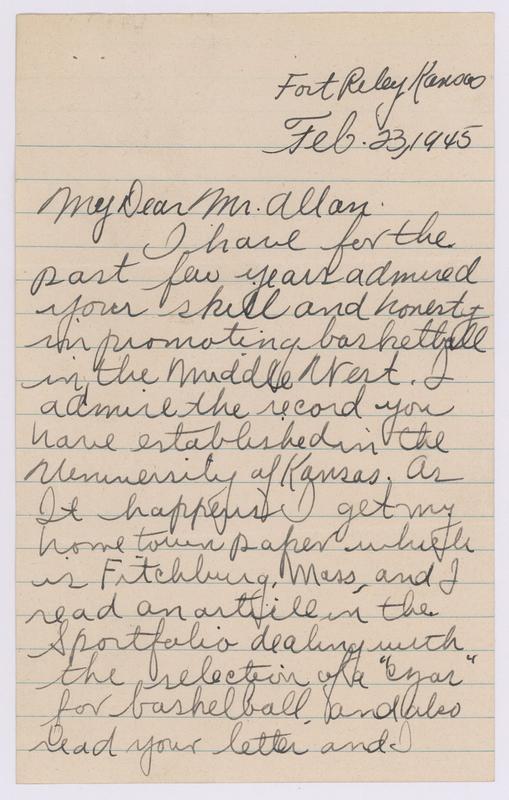 Fort Reley Kansas
Feb. 23, 1945
My Dear Mr. Allan.
I have for the
past few years admired
your skill and honesty
in promoting basketball
in the Middle West. I
admire the record you
have established in the
Uenuversity of Kansas. As
It happens I get my
home town paper which
is Fitchburg, Mass, and I
read an artticle in the
Sportfolio dealing with
the selection of a "czar"
for basketball, and also
read your letter and I